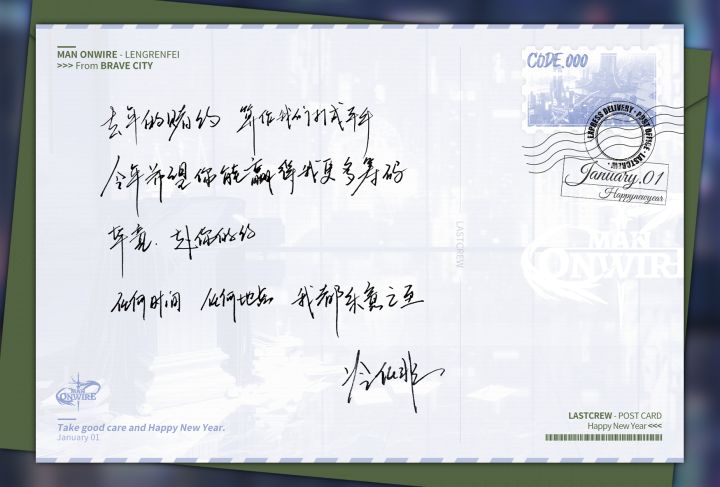 MAN ONWIRE - LENGRENFEI
>>> From BRAVE CITY
CODE.000
EXPRESS DELIVERY · POST OFFICE · LASTCREW
January.01
Happynewyear
去年的赌约 算作我们打成平手
今年希望你能赢得我更多筹码
毕竟. 赴你的约
任何时间 任何地点 我都乐意之至
冷仞非
LASTCREW
MAN
ONWIRE
MAN
ONWIRE
Take good care and Happy New Year.
January 01
LASTCREW - POST CARD
Happy New Year <<<